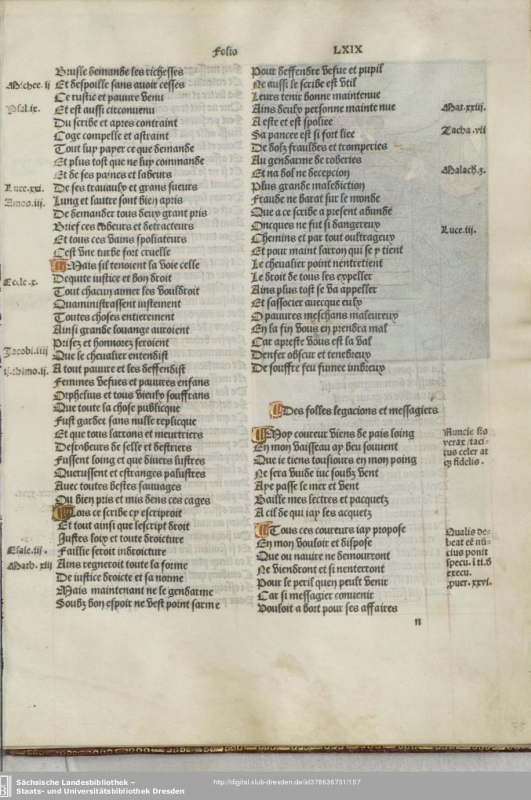 Folio LXIX
Brusle demande les richesses
Et despoille sans avoir cesses
Ce rustic et pauure venu
Et est aussi circonuenu
Du scribe et apres contraint
Coge compelle et astraint
Tout luy payer ce que demande
Et plus tost que ne luy commande
Et de ses paines et labeurs
De ses trauaulx et grans sueurs
Lung et lautre sont bien apris
De demander tous deux grant pris
Brief ces robeurs et detracteurs
Et tous ces vains spoliateurs
Cest vne turbe fort cruelle
Mais sil tenoient la voie celle
Dequite iustice et bon droit
Tout chacun aimer les vouldroit
Quaministrassent iustement
Toutes choses entierement
Ainsi grande louange auroient
Prisez et honnorez seroient
Que le cheualier entendist
A tout pauure et les deffendist
Femmes vefues et pauures enfans
Orphelins et tous vieulx souffrans
Que toute la chose publicque
Fust garder sans nulle replicque
Et que tous larrons et meurtriers
Desrobeurs de selle et destriers
Fussent loing et que diuers lustres
Querussent et estranges palustres
Auec toutes bestes sauuages
Ou bien pris et mis dens ces cages
Lors ce scribe cy escriproit
Et tout ainsi que lescript droit
Justes loix et toute droicture
Faillie seroit indroicture
Ains regneroit toute la forme
De iustice droicte et sa norme
Mais maintenant ne le gendarme
Soubz bon espoir ne vest point sarme
Michee. ii
Psal. ix.
Luce. xxi.
Amos. iii.
Eccle. x.
Jacobi. iiii
ii. thimo. ii.
Esaie. iii.
Math. xiii
Pour deffendre vefue et pupil
Ne aussi le scribe est vtil
Leurs tenir bonne maintenue
Ains deulx personne mainte nue
A este et est spoliee
Sa pancee est si fort liee
De dolz frauldes et tromperies
Au gendarme de roberies
Et na dol ne deception
Plus grande malediction
Fraude ne barat sur le monde
Que a ce scribe a present abunde
Oncques ne fut si dangereux
Chemins et par tout oultrageux
Et pour maint larron qui se y tient
Le cheualier point nentretient
Le droit de tous les expeller
Ains plus tost se va appeller
Et sassocier auecque eulx
O pauures meschans maleureux
En la fin vous en prendra mal
Car apreste vous est la val
Denfer obscur et tenebreux
De souffre feu fumee umbreux
Mat. xxiij.
Tacha. vii
Malach. 3.
Luce. iij.
Des folles legacions et messagiers
Moy coureur viens de pais loing
En mon vaisseau ay beu souuent
Que ie tiens tousiours en mon poing
Ne sera vuide iuc soubz vent
Aye passe le mer et vent
Baille mes lectres et pacquetz
A cil de qui iay les acquetz
Tous ces coureurs iay propose
En mon vouloir et dispose
Que ou nauire ne demourront
Ne viendront et si nentertont
Pour le peril quen peult venir
Car si messagier conuenir
Vouloit a bort pour ses affaires
Nuncie sto
verax taci-
tus celer at
qs fidelis.
Qualis de-
beat eē nū-
cius ponit
specu. i ti. d
execu.
puer. xxvi.
n
Sächsische Landesbibliothek –
Staats- und Universitätsbibliothek Dresden
http://digital.slub-dresden.de/id378636731/157